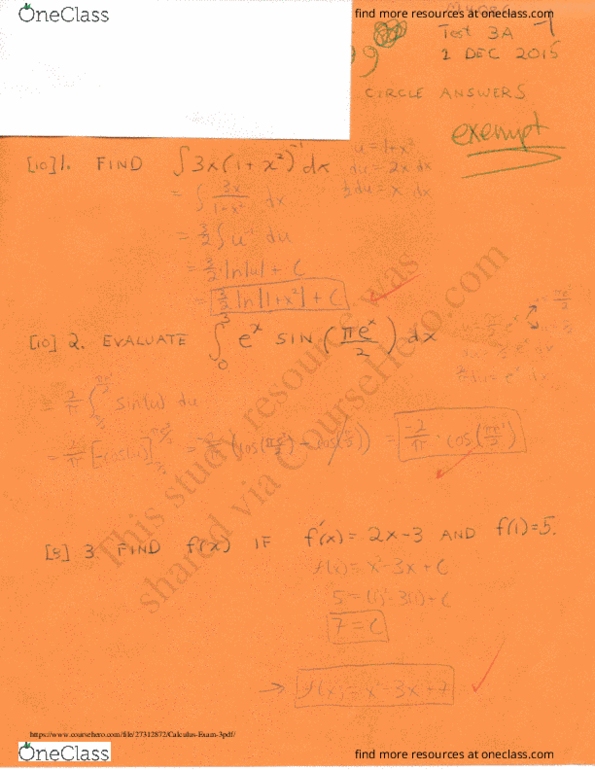 OneClass
find more resources at oneclass.com
Test 3A
1 DEC 2015
99
CIRCLE ANSWERS
exempt
[10] 1. FIND ∫ 3x(1+x²)⁻¹ dx
u = 1+x²
du = 2x dx
½ du = x dx
= ∫ 3x/(1+x²) dx
= 3/2 ∫ u⁻¹ du
= 3/2 ln|u| + C
= 3/2 ln|1+x²| + C
[10] 2. EVALUATE ∫₀³ eˣ SIN (πeˣ/2) dx
= 2/π ∫ sin(u) du
= 2/π [-cos(u)]
[8] 3 FIND f(x) IF f'(x) = 2x-3 AND f(1)=5.
f(x) = x²-3x+C
5 = (1)²-3(1)+C
7 = C
→ f(x) = x²-3x+7
This study resource was
shared via CourseHero.com
https://www.coursehero.com/file/27312872/Calculus-Exam-3pdf/
OneClass
find more resources at oneclass.com